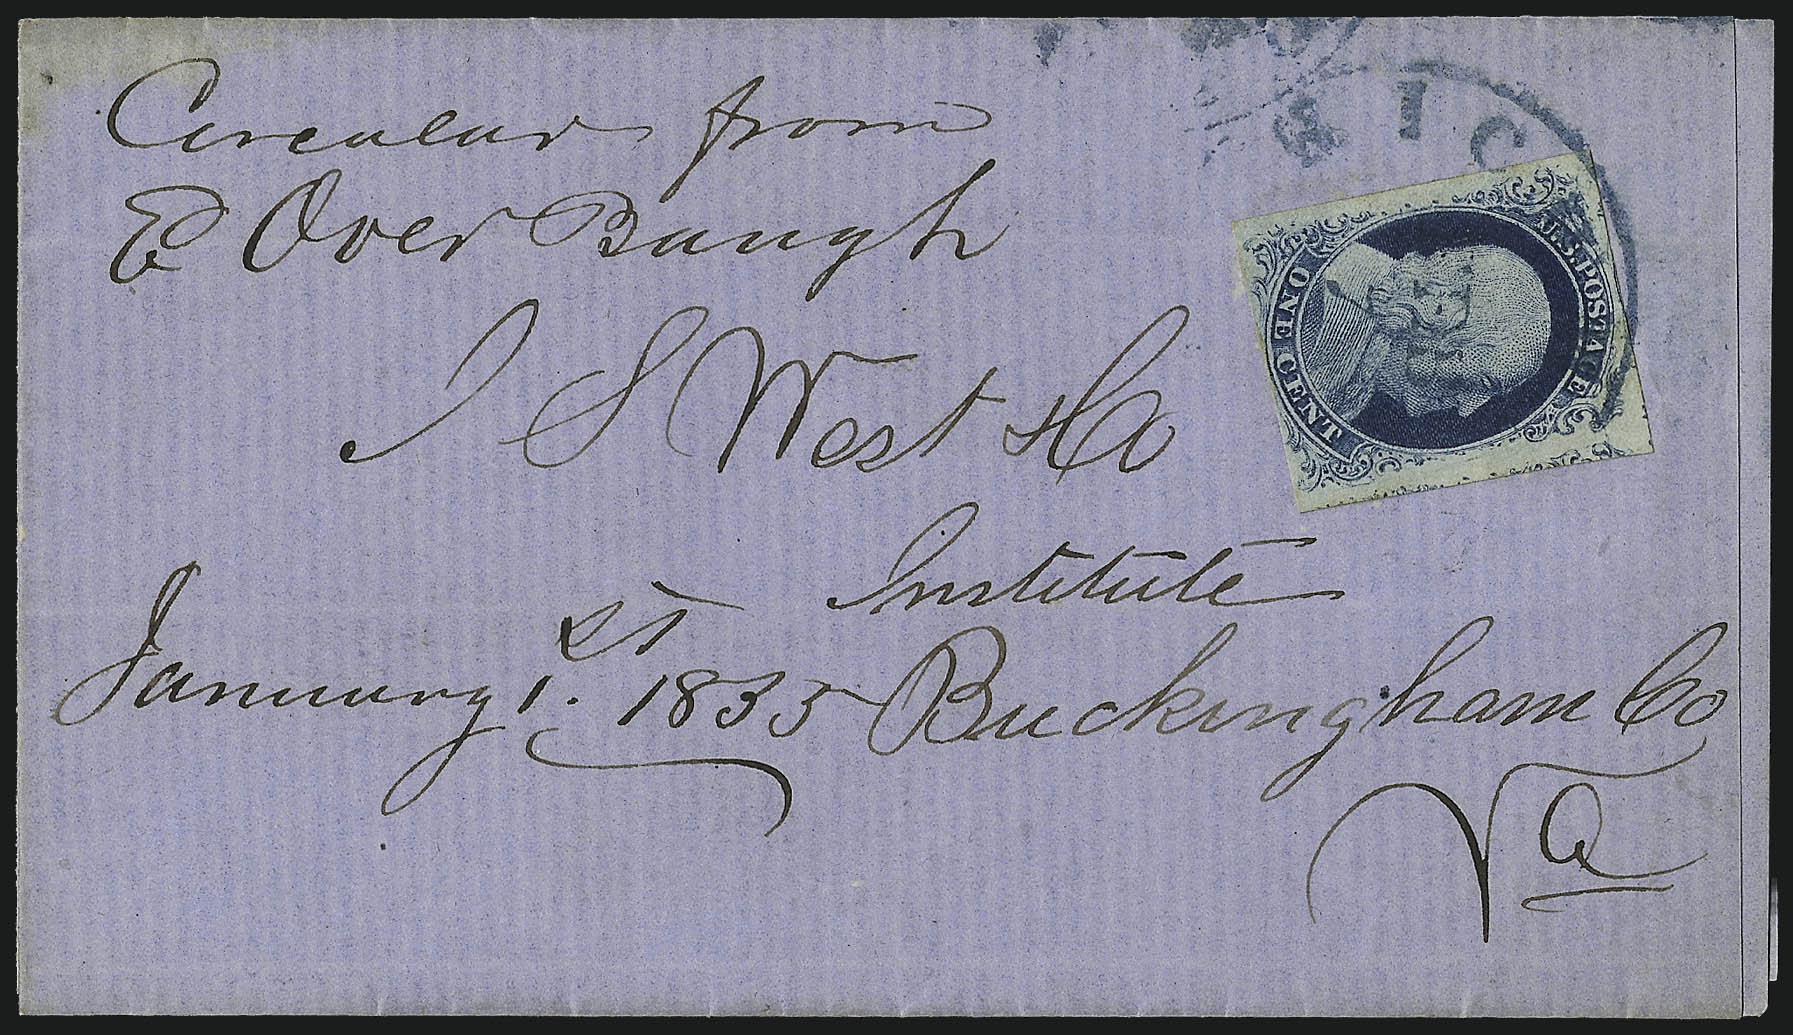 Circular from
E Over Baugh
J S West & Co
Institute
January 1.st 1855 Buckingham Co
Va
RIC
U.S. POSTAGE
ONE CENT.